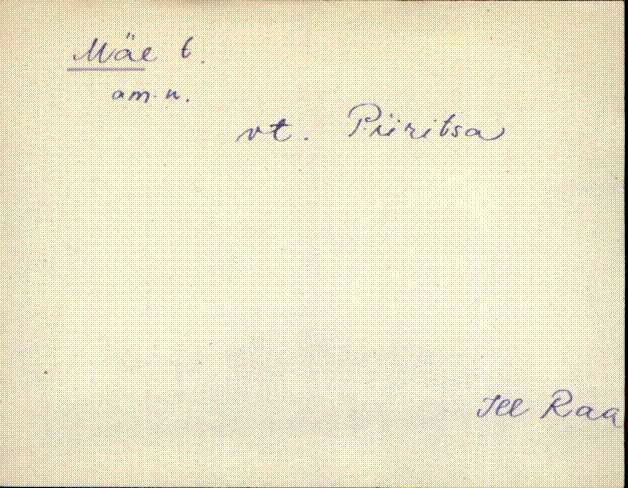 Mäe t.
am. n.
vt. Piiritsa
Ill Raa